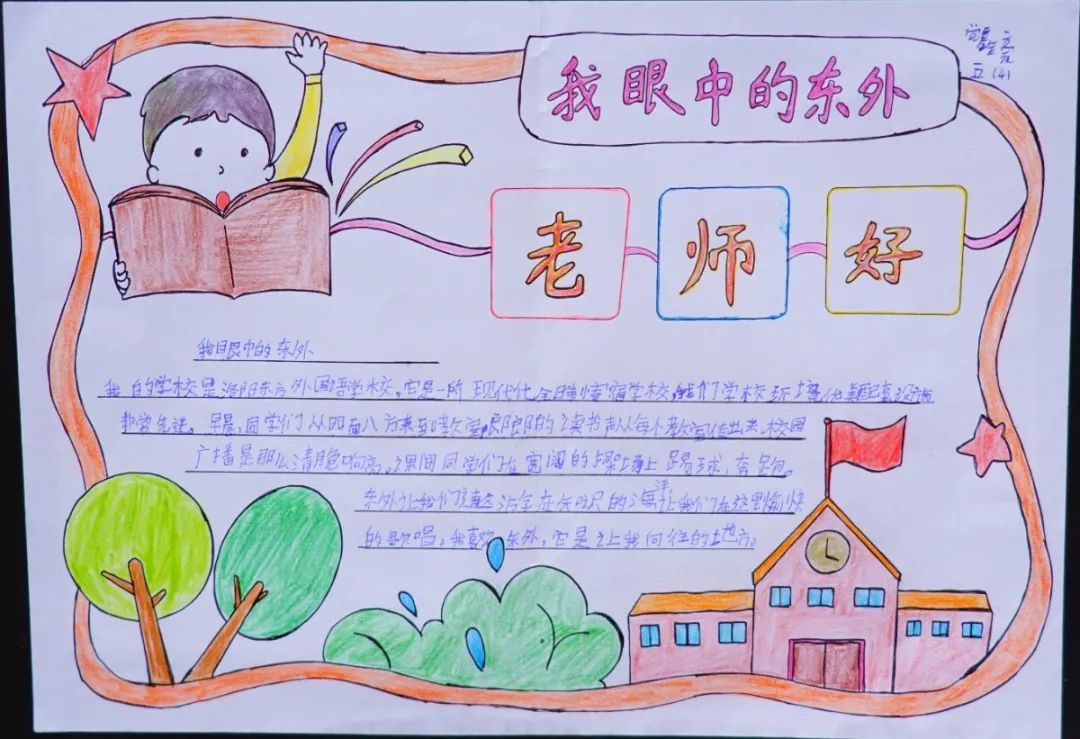 我眼中的东外
五(4)
老师好
我眼中的东外
我的学校是洛阳东方外国语学校。它是一所现代化全日制寄宿学校,我们学校环境优美配套设施
非常先进。早晨,同学们从四面八方来到教室,郎郎的读书声从每个教室传出来,校园
广播是那么清脆响亮。课间同学们在宽阔的操场上踢球,奔跑。
东外让我们遨游在知识的海洋让我们在这里愉快
的歌唱。我喜欢东外,它是让我向往的地方。